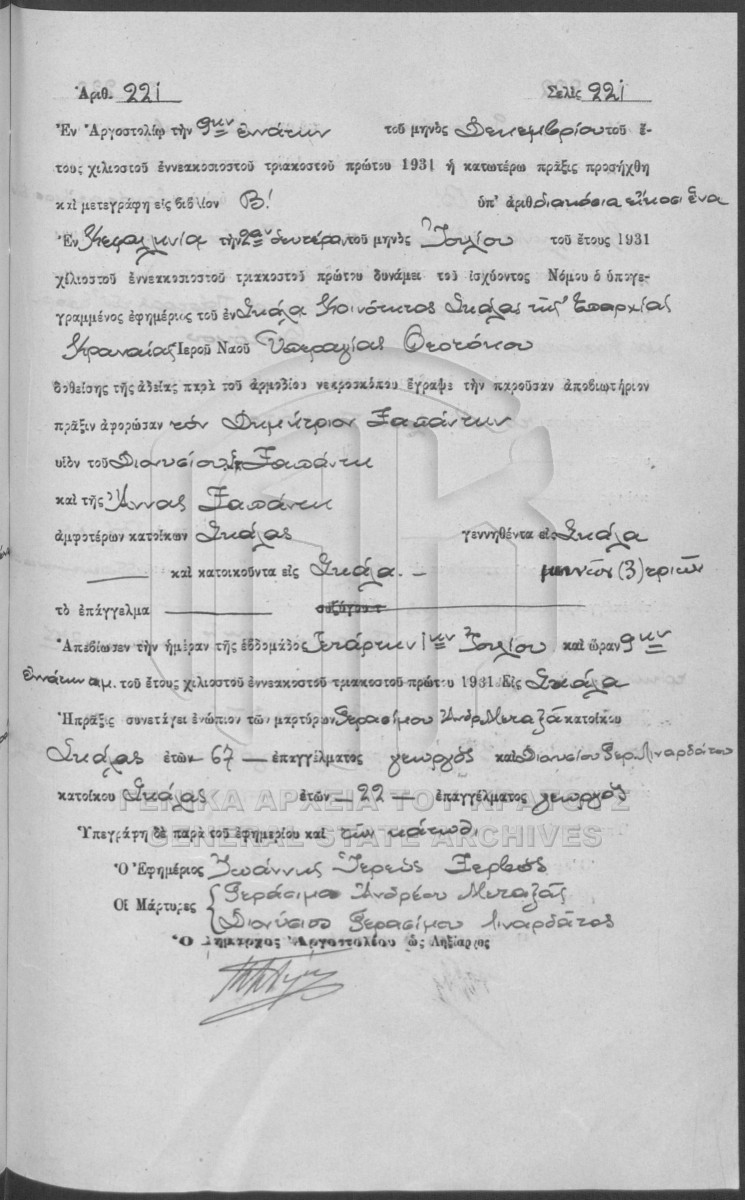 Ἀριθ. 221 Σελὶς 221
Ἐν Ἀργοστολίῳ τὴν 9ην ἐννάτην τοῦ μηνὸς Δεκεμβρίου τοῦ ἔ-
τους χιλιοστοῦ ἐννεακοσιοστοῦ τριακοστοῦ πρώτου 1931 ἡ κατωτέρω πρᾶξις προσήχθη
καὶ μετεγράφη εἰς βιβλίον Β! ὑπ' ἀριθ διακόσια εἴκοσι ἕνα
Ἐν Κεφαλληνίᾳ τὴν 2αν δευτέραν τοῦ μηνὸς Ἰουλίου τοῦ ἔτους 1931
χιλιοστοῦ ἐννεακοσιοστοῦ τριακοστοῦ πρώτου δυνάμει τοῦ ἰσχύοντος Νόμου ὁ ὑπογε-
γραμμένος ἐφημέριος τοῦ ἐν Σκάλᾳ Κοινότητος Σκάλας τῆς Ἐπαρχίας
Κραναίας Ἱεροῦ Ναοῦ Ὑπεραγίας Θεοτόκου
δοθείσης τῆς ἀδείας παρὰ τοῦ ἁρμοδίου νεκροσκόπου ἔγραψε τὴν παροῦσαν ἀποβιωτήριον
πρᾶξιν ἀφορῶσαν τὸν Δημήτριον Ξαπάντην
υἱὸν τοῦ Διονυσίου Ξαπάντη
καὶ τῆς Ἄννας Ξαπάντη
ἀμφοτέρων κατοίκων Σκάλας γεννηθέντα εἰς Σκάλα
καὶ κατοικοῦντα εἰς Σκάλα. – μηνῶν (3) τριῶν
τὸ ἐπάγγελμα συζύγου τ
Ἀπεβίωσεν τὴν ἡμέραν τῆς ἑβδομάδος Τετάρτην 1ην Ἰουλίου καὶ ὥραν 9ην
ἐννάτην π.μ. τοῦ ἔτους χιλιοστοῦ ἐννεακοστοῦ τριακοστοῦ πρώτου 1931 Εἰς Σκάλα
Ἡ πρᾶξις συνετάγει ἐνώπιον τῶν μαρτύρων Γερασίμου Ἀνδρ Μεταξᾶ κατοίκου
Σκάλας ἐτῶν 67 – ἐπαγγέλματος γεωργὸς καὶ Διονυσίου Γερ. Λιναρδάτου
κατοίκου Σκάλας ἐτῶν – 22 – ἐπαγγέλματος γεωργὸς
Ὑπεγράφη δὲ παρὰ τοῦ ἐφημερίου καὶ τῶν κάτωθι
Ὁ Ἐφημέριος Ἰωάννης Ἱερεὺς Ζερβὸς
Οἱ Μάρτυρες Γεράσιμο Ἀνδρέου Μεταξᾶς
Διονύσιο Γερασίμου Λιναρδάτος
Ὁ Δήμαρχος Ἀργοστολίου ὡς Ληξίαρχος
ΓΕΝΙΚΑ ΑΡΧΕΙΑ ΤΟΥ ΚΡΑΤΟΥΣ
GENERAL STATE ARCHIVES